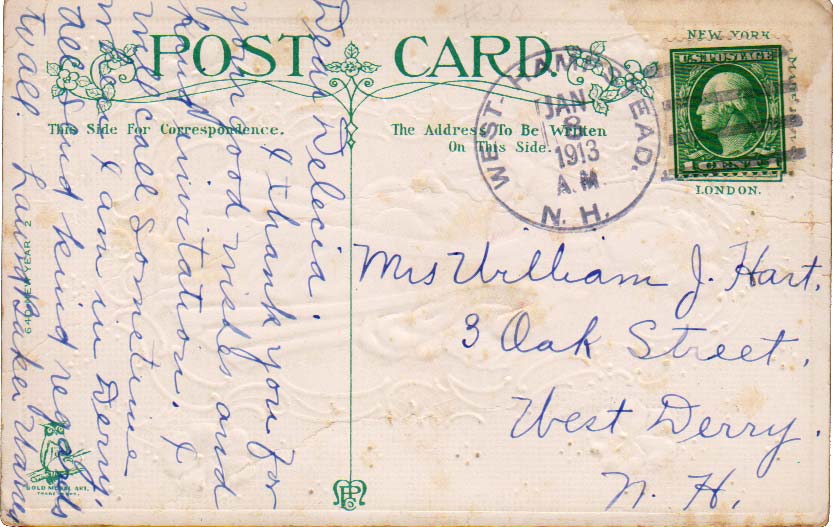 POST CARD.
This Side For Correspondence.
The Address To Be Written
On This Side.
NEW YORK
U.S. POSTAGE
1 CENT 1
LONDON.
WEST-HAMPSTEAD.
JAN
8
1913
A.M.
N.H.
Mrs William J. Hart.
3 Oak Street.
West Derry.
N. H.
Dear Delecia.
I thank you for
your good wishes and
kind invitation. I
will call sometime
when I am in Derry.
all send kind regards
to all. Laura Baker
640 NEW YEAR 2
GOLD MEDAL ART.
TRADE MARK.